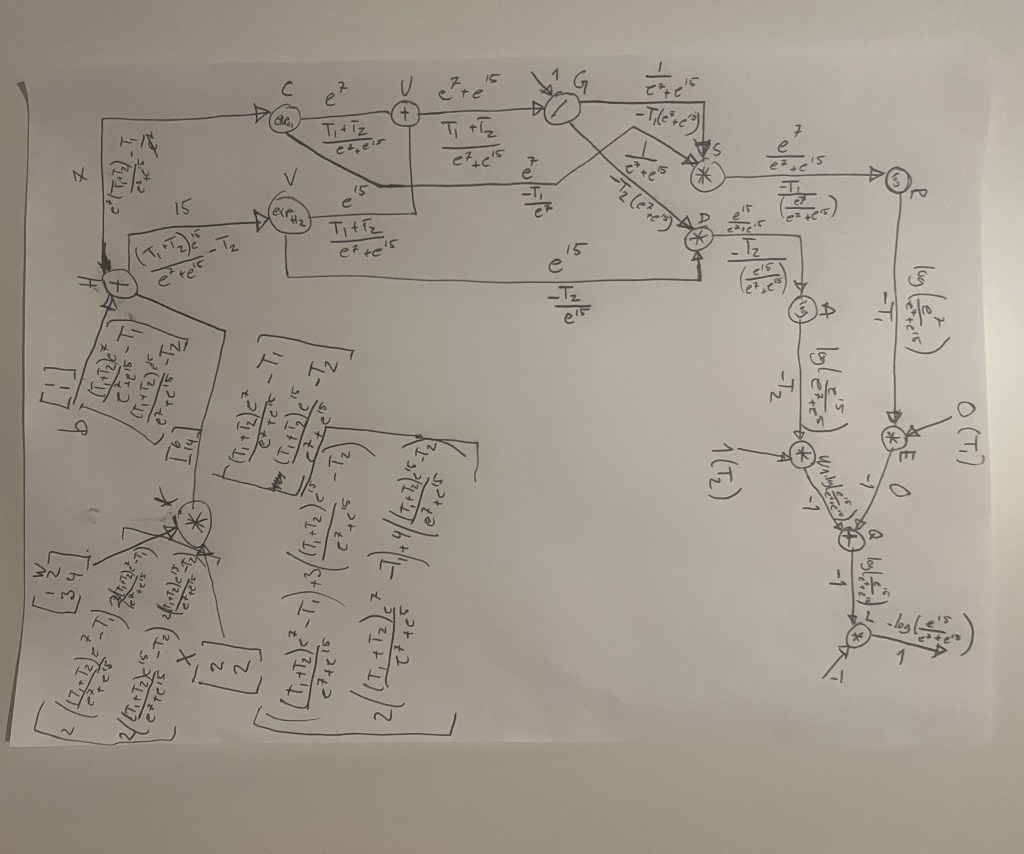 C
e^7
U
e^7+e^15
1
G
1/(e^7+e^15)
exp_1
+
/
(T_1+T_2)/(e^7+e^15)
(T_1+T_2)/(e^7+e^15)
-T_1(e^7+e^15)
S
e^7/(e^7+e^15)
*
-T_1/(e^7/(e^7+e^15))
R
V
e^15
e^7
-T_1/e^7
1/(e^7+e^15)
-T_2(e^7+e^15)
exp_2
(T_1+T_2)/(e^7+e^15)
7
e^7(T_1+T_2)/(e^7+e^15) -T_1
15
(T_1+T_2)e^15/(e^7+e^15) -T_2
D
*
e^15/(e^7+e^15)
-T_2/(e^15/(e^7+e^15))
e^15
-T_2/e^15
log(e^7/(e^7+e^15))
-T_1
A
log(e^15/(e^7+e^15))
-T_2
H
+
[1
1]
b
[(T_1+T_2)e^7/(e^7+e^15) -T_1
(T_1+T_2)e^15/(e^7+e^15) -T_2]
[6
14]
[(T_1+T_2)e^7/(e^7+e^15) -T_1
(T_1+T_2)e^15/(e^7+e^15) -T_2]
0(T_1)
*
E
0
-1
1(T_2)
*
-1
+
Q
log(e^15/(e^7+e^15))
-1
*
L
-1
-log(e^15/(e^7+e^15))
1
K
*
W
[1 2
3 4]
X
[2
2]
[2((T_1+T_2)e^7/(e^7+e^15) -T_1) 2((T_1+T_2)e^7/(e^7+e^15) -T_1)
2((T_1+T_2)e^15/(e^7+e^15) -T_2) 2((T_1+T_2)e^15/(e^7+e^15) -T_2)]
[((T_1+T_2)e^7/(e^7+e^15) -T_1)+3((T_1+T_2)e^15/(e^7+e^15) -T_2)
2((T_1+T_2)e^7/(e^7+e^15) -T_1)+4((T_1+T_2)e^15/(e^7+e^15) -T_2)]